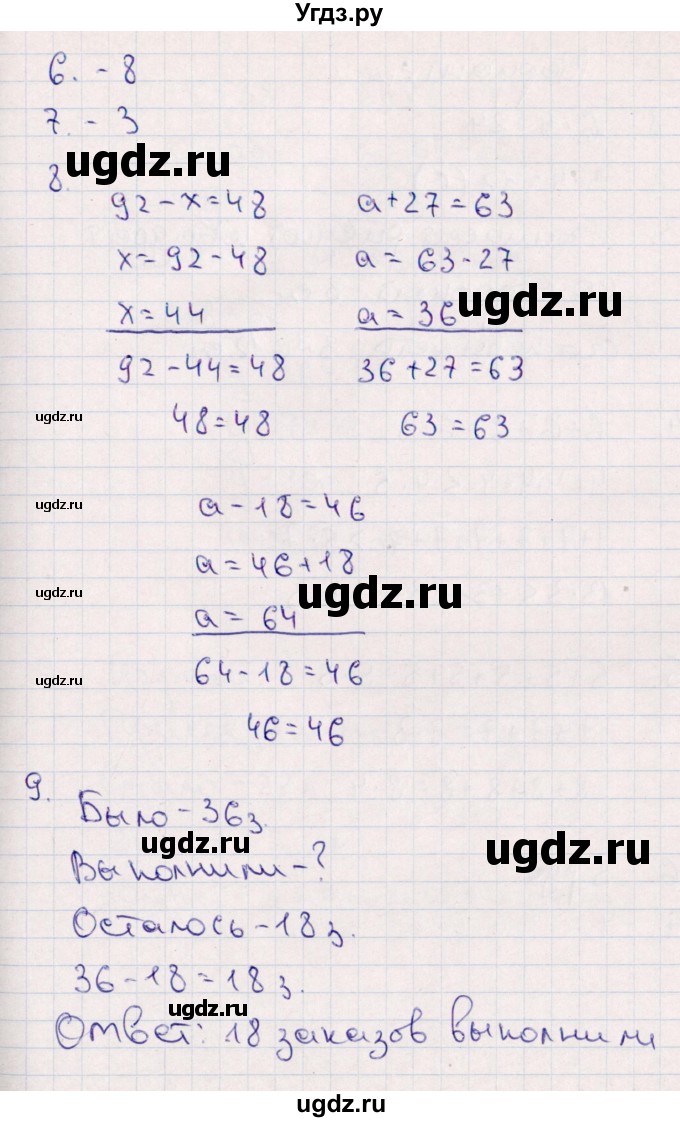 Угдз.ру
6. - 8
7. - 3
ugdz.ru
8.
92 - x = 48 a + 27 = 63
x = 92 - 48 a = 63 - 27
ugdz.ru
x = 44 a = 36
92 - 44 = 48 36 + 27 = 63
ugdz.ru
48 = 48 63 = 63
ugdz.ru
a - 18 = 46
a = 46 + 18
ugdz.ru ugdz.ru
a = 64
ugdz.ru
64 - 18 = 46
46 = 46
9.
Было - 36 з.
ugdz.ru ugdz.ru
Выполнили - ?
Осталось - 18 з.
36 - 18 = 18 з.
ugdz.ru
Ответ: 18 заказов выполнили
ugdz.ru